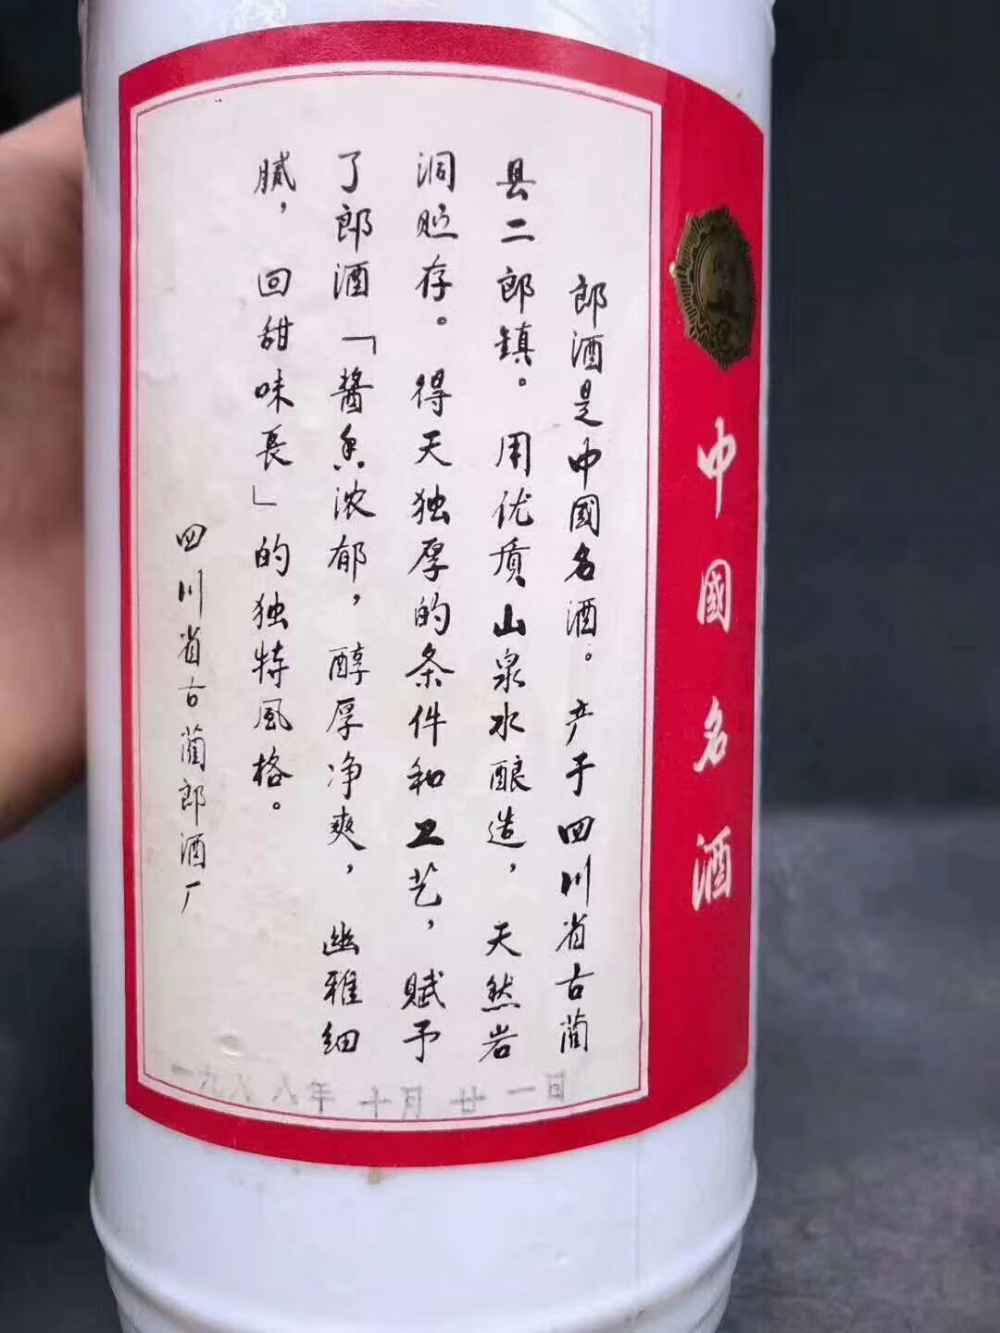 中國名酒
郎酒是中國名酒。产于四川省古蔺
县二郎镇。用优质山泉水酿造，天然岩
洞贮存。得天独厚的条件和工艺，赋予
了郎酒「酱香浓郁，醇厚净爽，幽雅细
腻，回甜味長」的独特風格。
四川省古蔺郎酒厂
一九八八年十月廿一日